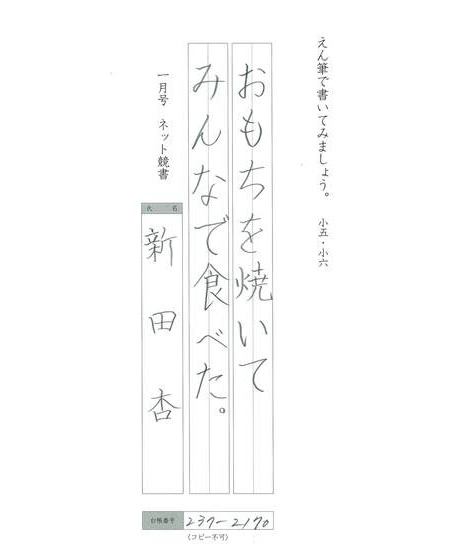 えん筆で書いてみましょう。 小五・小六
おもちを焼いて
みんなで食べた。
一月号 ネット競書
氏 名
新田 杏
台帳番号 237-2170
(コピー不可)